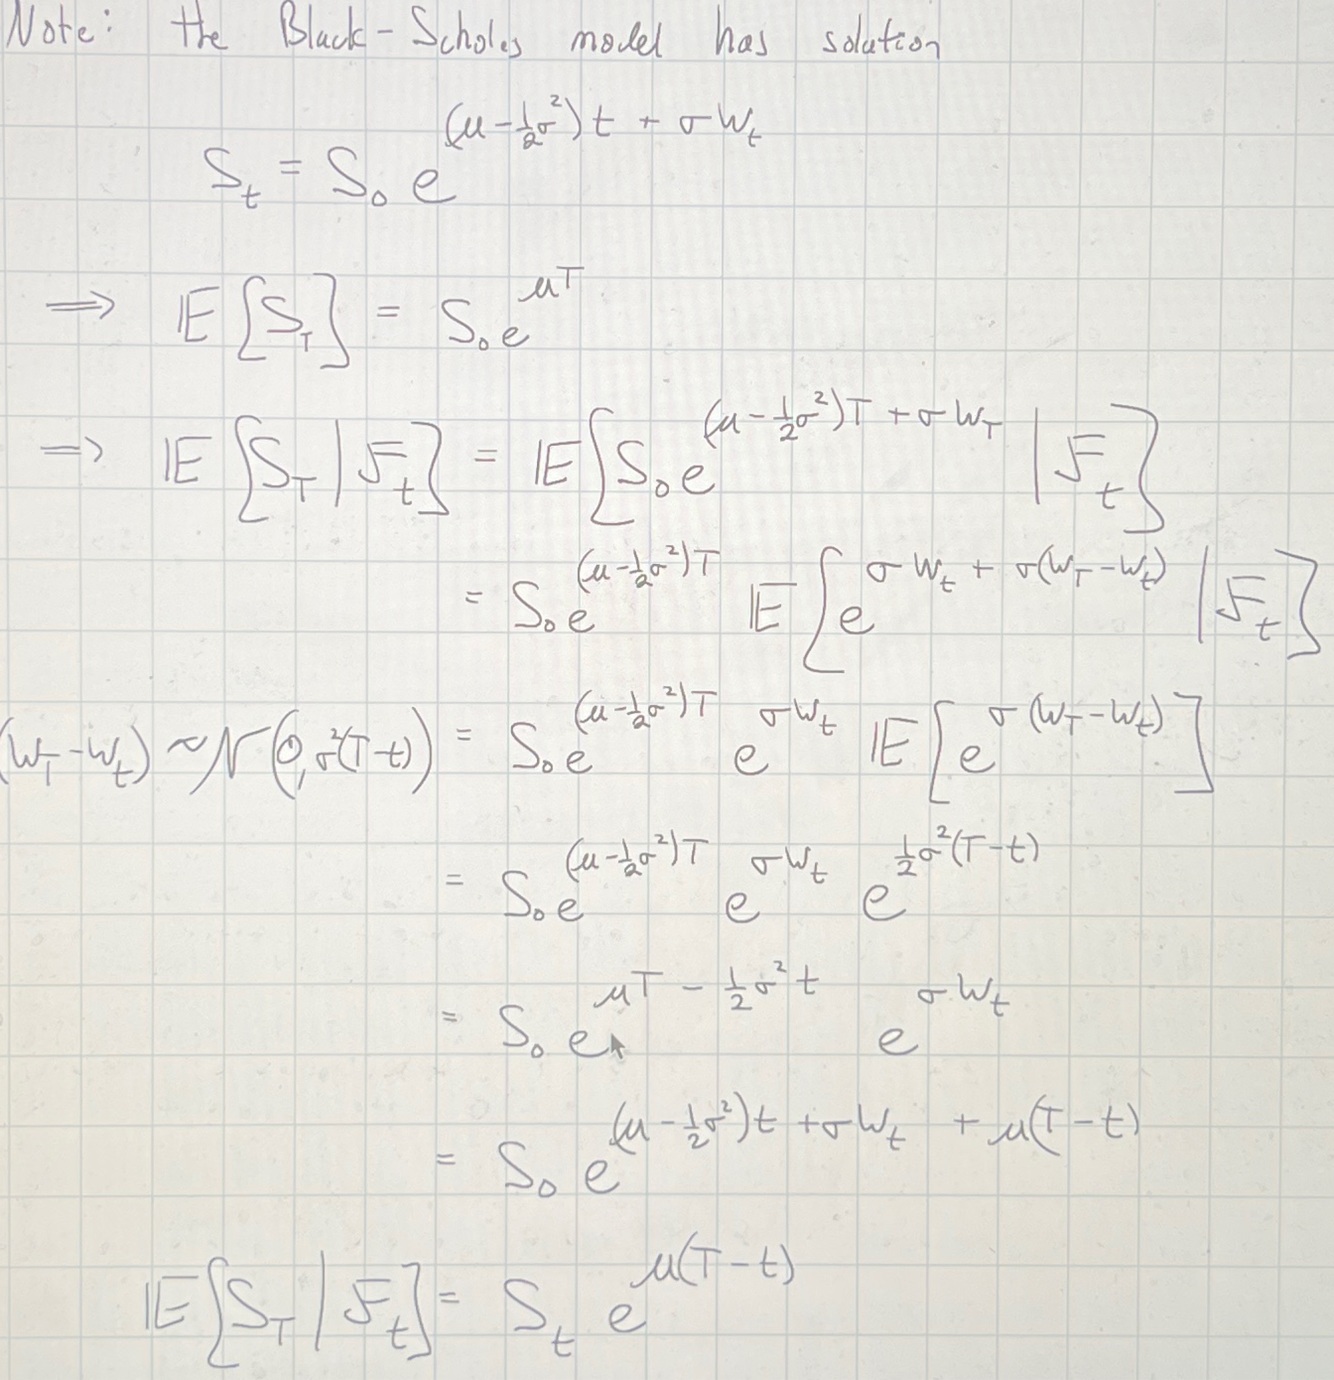 Note: the Black-Scholes model has solution
S_t = S_0 e^{(μ-½σ²)t + σW_t}
⟹ 𝔼[S_T] = S_0 e^{μT}
⟹ 𝔼[S_T | ℱ_t] = 𝔼[S_0 e^{(μ-½σ²)T + σW_T} | ℱ_t]
= S_0 e^{(μ-½σ²)T} 𝔼[e^{σW_t + σ(W_T-W_t)} | ℱ_t]
(W_T-W_t) ~ N(0, σ²(T-t)) = S_0 e^{(μ-½σ²)T} e^{σW_t} 𝔼[e^{σ(W_T-W_t)}]
= S_0 e^{(μ-½σ²)T} e^{σW_t} e^{½σ²(T-t)}
= S_0 e^{μT - ½σ²t} e^{σW_t}
= S_0 e^{(μ-½σ²)t + σW_t + μ(T-t)}
𝔼[S_T | ℱ_t] = S_t e^{μ(T-t)}